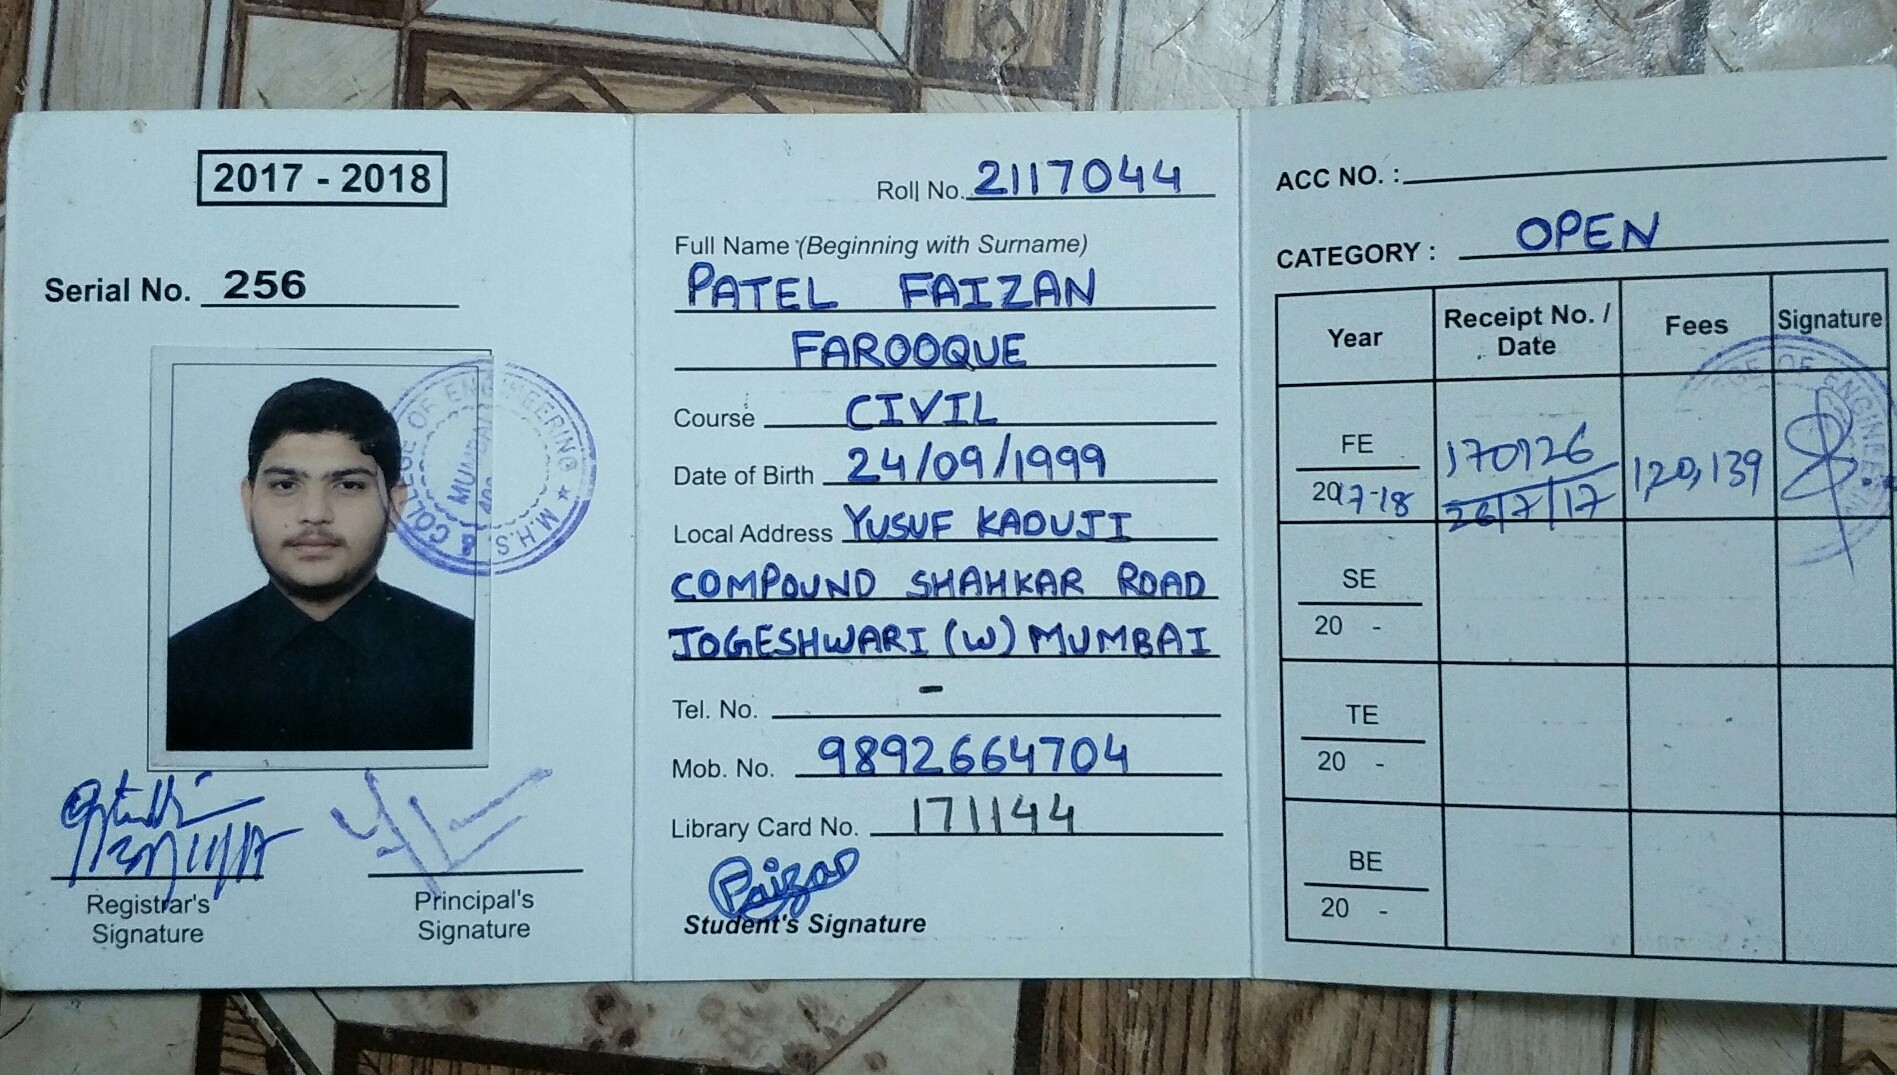 2017 - 2018
Serial No. 256
COLLEGE OF ENGINEERING ★ M.H.S.S.
MUMBAI
Registrar's
Signature
Principal's
Signature
Roll No. 2117044
Full Name (Beginning with Surname)
PATEL FAIZAN
FAROOQUE
Course CIVIL
Date of Birth 24/09/1999
Local Address YUSUF KADUJI
COMPOUND SHAHKAR ROAD
JOGESHWARI (W) MUMBAI
Tel. No. -
Mob. No. 9892664704
Library Card No. 171144
Faizan
Student's Signature
ACC NO. :
CATEGORY : OPEN
Year Receipt No. / Date Fees Signature
FE 2017-18 170126 26/7/17 1,20,139
SE 20 -
TE 20 -
BE 20 -